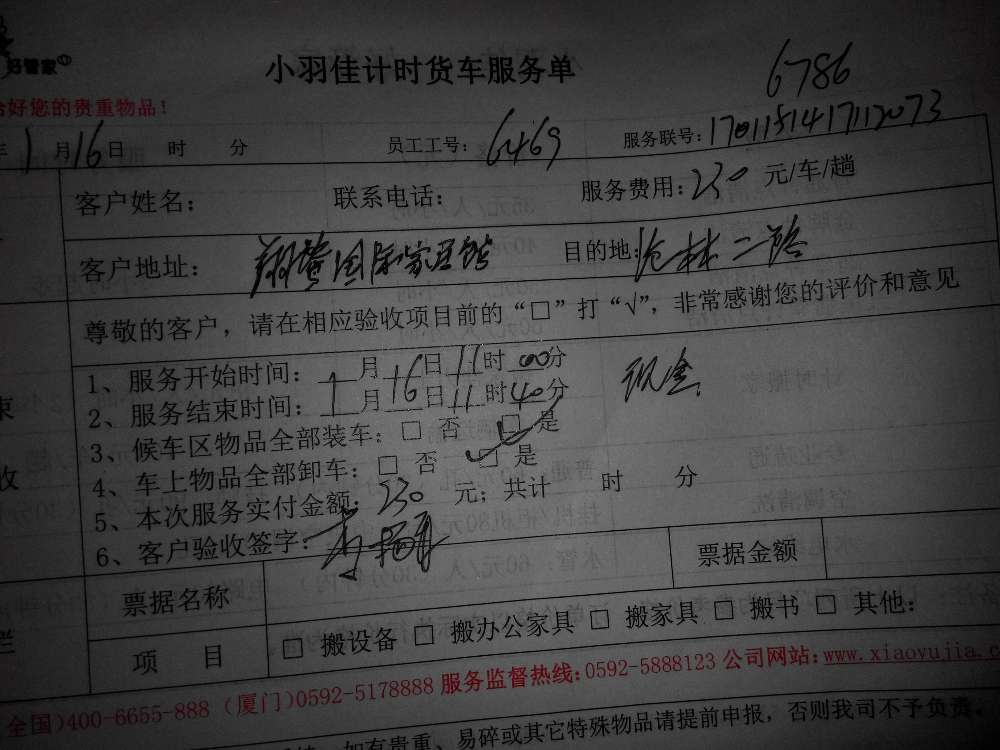 好管家
小羽佳计时货车服务单
6786
给好您的贵重物品！
年 1 月 16 日 时 分 员工工号：6469 服务联号：17011514171112073
客户姓名： 联系电话： 服务费用：230 元/车/趟
客户地址： 国际 目的地：沧林二路
尊敬的客户，请在相应验收项目前的“□”打“√”，非常感谢您的评价和意见
1、服务开始时间：1月16日11时00分
现金
2、服务结束时间：1月16日11时40分
3、候车区物品全部装车：□ 否 ☑ 是
4、车上物品全部卸车：□ 否 ☑ 是
5、本次服务实付金额：230 元；共计 时 分
6、客户验收签字：
收
票据名称 票据金额
栏
项 目 □ 搬设备 □ 搬办公家具 □ 搬家具 □ 搬书 □ 其他：
全国)400-6655-888 (厦门)0592-5178888 服务监督热线：0592-5888123 公司网站：www.xiaoyujia.c
如有贵重、易碎或其它特殊物品请提前申报，否则我司不予负责。